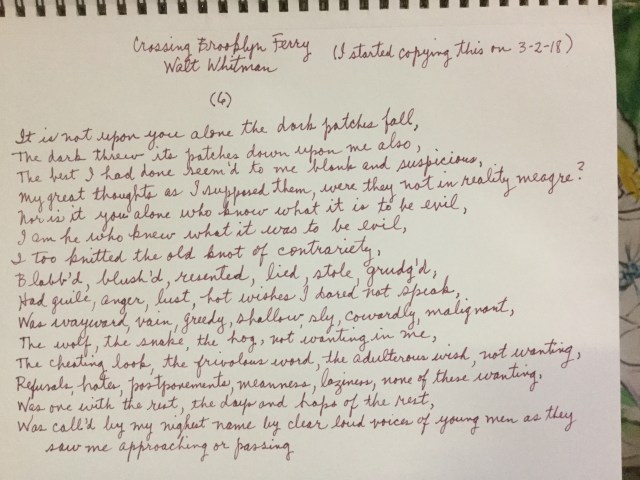 Crossing Brooklyn Ferry
Walt Whitman
(I started copying this on 3-2-18)
(6)
It is not upon you alone the dark patches fall,
The dark threw its patches down upon me also,
The best I had done seem'd to me blank and suspicious,
My great thoughts as I supposed them, were they not in reality meagre?
Nor is it you alone who know what it is to be evil,
I am he who knew what it was to be evil,
I too knitted the old knot of contrariety,
Blabb'd, blush'd, resented, lied, stole, grudg'd,
Had guile, anger, lust, hot wishes I dared not speak,
Was wayward, vain, greedy, shallow, sly, cowardly, malignant,
The wolf, the snake, the hog, not wanting in me,
The cheating look, the frivolous word, the adulterous wish, not wanting,
Refusals, hates, postponements, meanness, laziness, none of these wanting,
Was one with the rest, the days and haps of the rest,
Was call'd by my nighest name by clear loud voices of young men as they
saw me approaching or passing